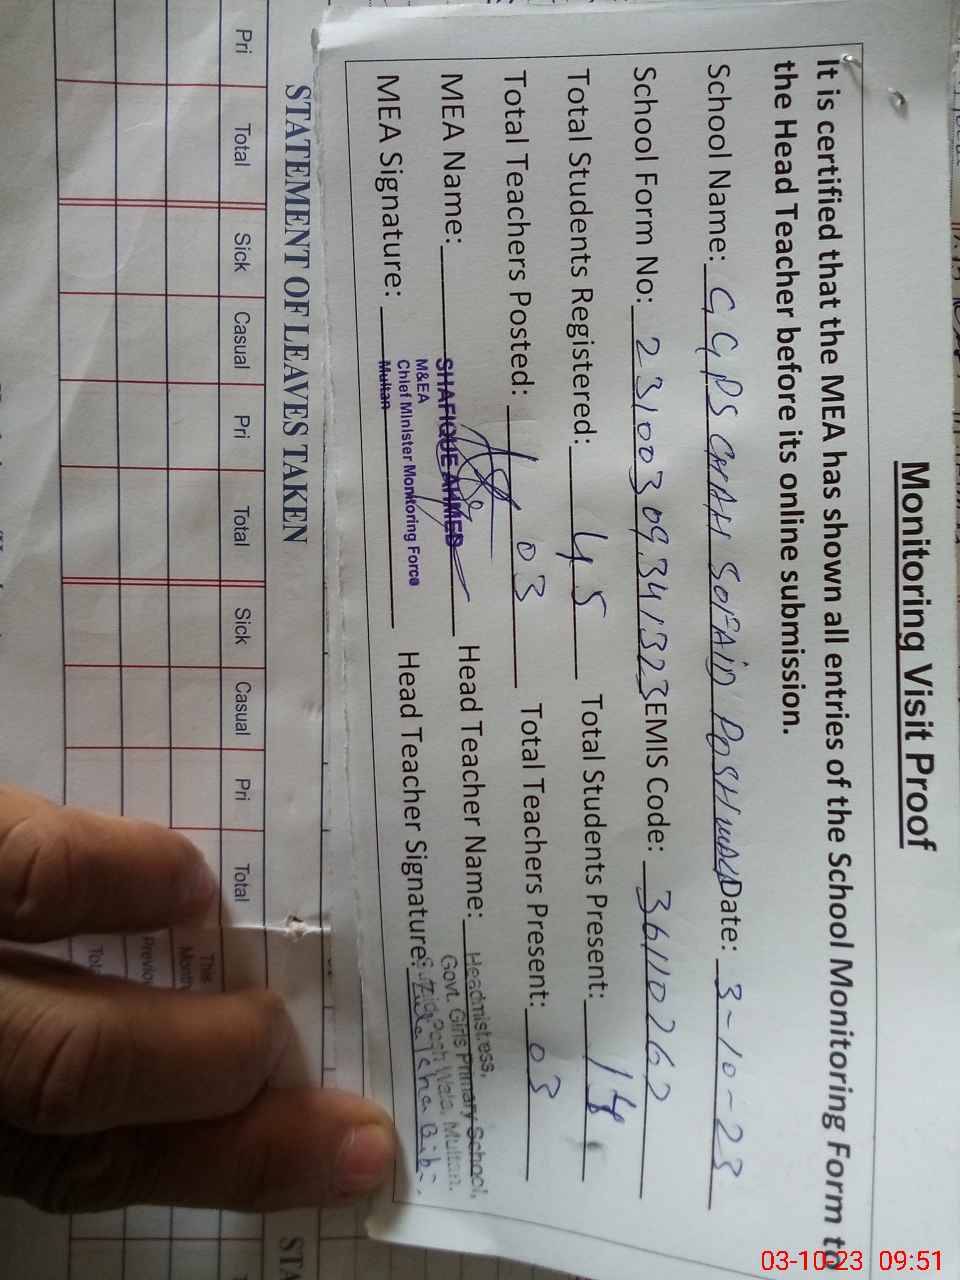 Monitoring Visit Proof
It is certified that the MEA has shown all entries of the School Monitoring Form to
the Head Teacher before its online submission.
School Name: GGPS CHAH SOFAID POSHWALA Date: 3-10-23
School Form No: 231003 09341323 EMIS Code: 36110262
Total Students Registered: 45 Total Students Present: 14
Total Teachers Posted: 03 Total Teachers Present: 03
MEA Name: SHAFIQUE AHMED Head Teacher Name: Headmistress,
M&EA Govt. Girls Primary School,
Chief Minister Monitoring Force Posh Wala, Multan.
Multan
MEA Signature: Head Teacher Signature: Bibi
STATEMENT OF LEAVES TAKEN
STA
Pri Total Sick Casual Pri Total Sick Casual Pri Total
This
Month
Previo
Tot
03-10-23 09:51